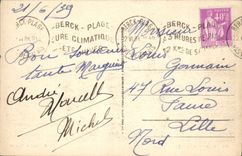 21/6/39
BERCK-PLAGE
CURE CLIMATIQUE
BERCK-PLAGE
3 HEURES
12 KMS DE
40c
Bon souvenir
tante Marguerite
André
Marcelle
Michel
Monsieur
Louis Germain
47 Rue Louis
Faure
Lille
Nord